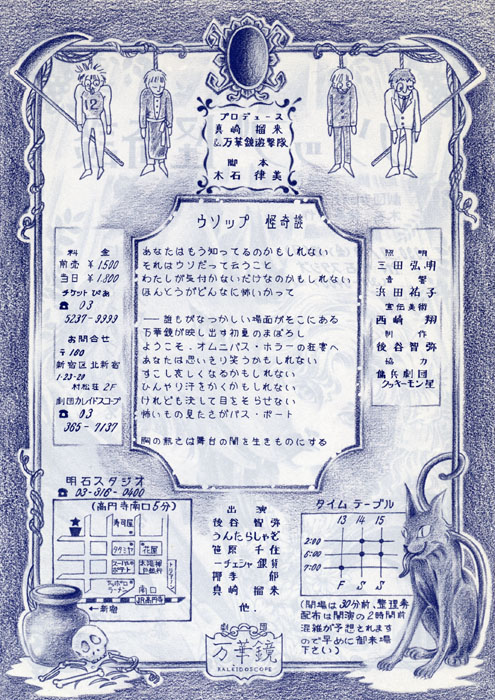 12
プロデュース
真崎 瑠来
&万華鏡遊撃隊
脚本
木石 律美
ウソップ 怪奇談
あなたはもう知ってるのかもしれない
それはウソだって云うこと
わたしが気付かないだけなのかもしれない
ほんとうがどんなに怖いかって
――誰もがなつかしい場面がそこにある
万華鏡が映し出す初夏のまぼろし
ようこそ、オムニバス・ホラーの狂宴へ
あなたは思いきり笑うかもしれない
すこし哀しくなるかもしれない
ひんやり汗をかくかもしれない
けれども決して目をそらせない
怖いもの見たさがパス・ポート
胸の熱さは舞台の闇を生きものにする
料金
前売 ¥1500
当日 ¥1800
チケットぴあ
☎ 03
5237-9999
お問合せ
〒160
新宿区北新宿
1-23-20
村松荘2F
劇団カレイドスコープ
☎ 03
365-7137
照明
三田弘明
音響
浜田祐子
宣伝美術
西崎 翔
制作
後谷智弥
協力
傭兵劇団
クッキーモン星
明石スタジオ
☎ 03-316-0400
(高円寺南口5分)
寿司屋
タクミヤ
花屋
南口
JR高円寺
←新宿
出演
後谷 智弥
うんたらしゃど
笹原 千佳
一チェンヤ 銀貨
李 郁
真崎 瑠来
他.
劇団
万華鏡
KALEIDOSCOPE
タイムテーブル
13 14 15
2:00
6:00
7:00
F S S
(開場は30分前、整理券
配布は開演の2時間前
混雑が予想されます
ので早めに御来場
下さい)